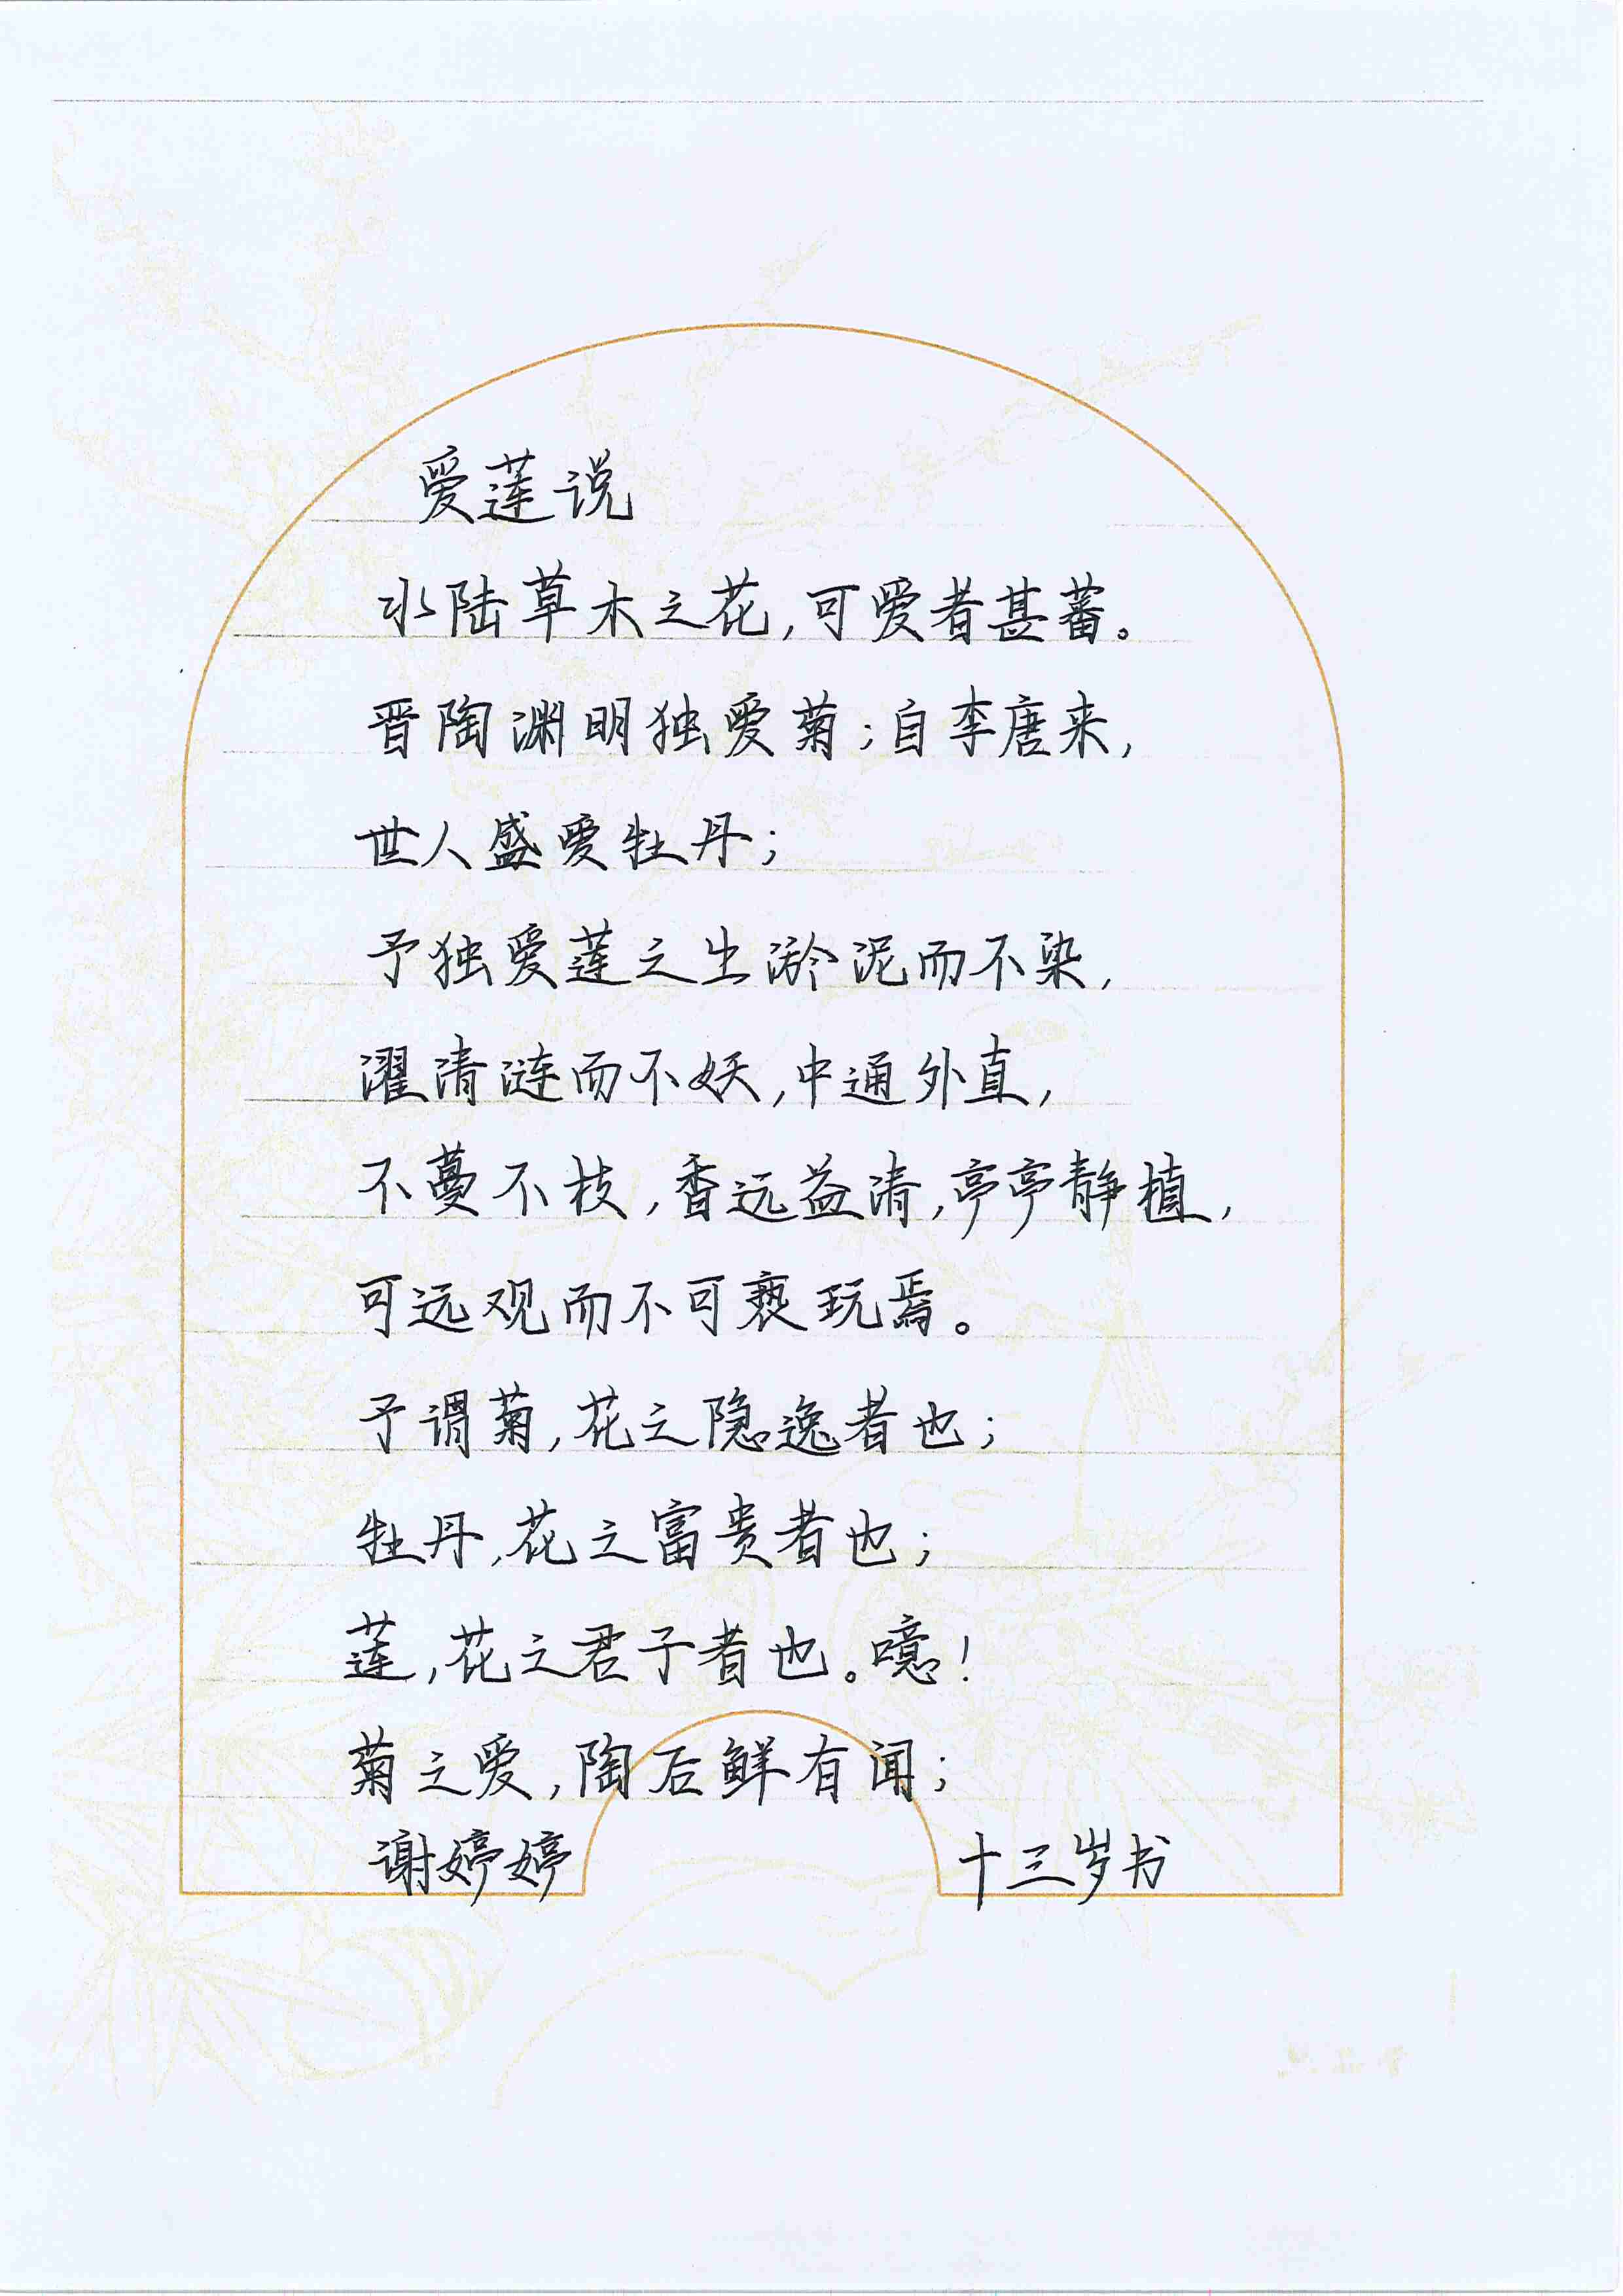 爱莲说
水陆草木之花,可爱者甚蕃。
晋陶渊明独爱菊;自李唐来,
世人盛爱牡丹;
予独爱莲之出淤泥而不染,
濯清涟而不妖,中通外直,
不蔓不枝,香远益清,亭亭静植,
可远观而不可亵玩焉。
予谓菊,花之隐逸者也;
牡丹,花之富贵者也;
莲,花之君子者也。噫!
菊之爱,陶后鲜有闻;
谢婷婷 十三岁书